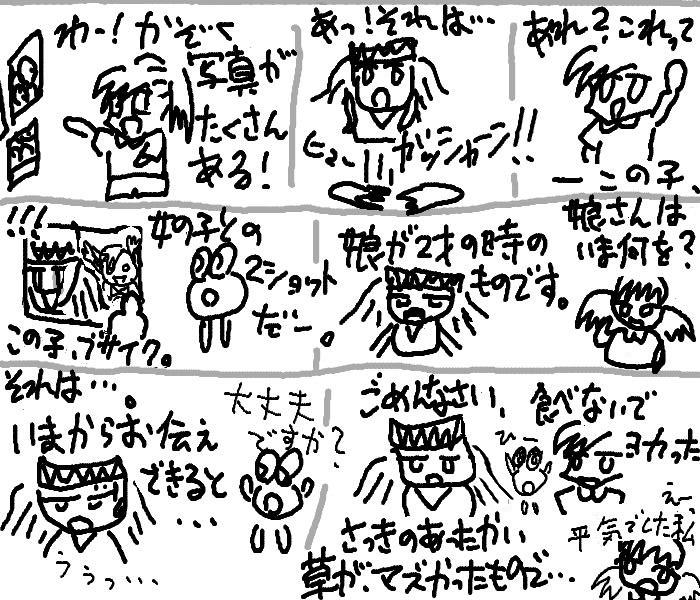 わー！がぞく
写真が
たくさん
ある！
あっ！それは…
ヒュー
ガッシャーン!!
あれ？これって
ーこの子、
!!!
女の子との
2ショット
だー。
この子、ブサイク。
娘が2才の時の
ものです。
娘さんは
いま何を？
それは…。
いまからお伝え
できると
...
うぅっ…
大丈夫
ですか？
ごめんなさい、
さっきのあったかい
草が、マズかったもので…
ひー
食べないで
ヨカった
えー
平気でした私